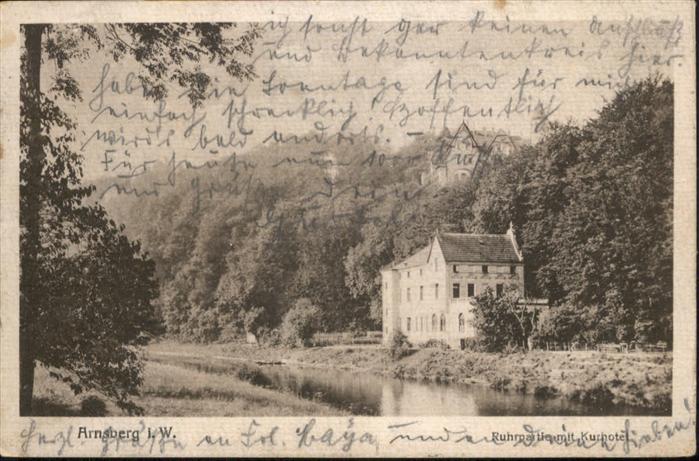 ich sonst gar keinen Anschluß
und Bekanntenkreis hier
habe, die Sonntage sind für mich
einfach schrecklich. Hoffentlich
wird's bald anders. –
Für heute nun 1000 Küsse
und Grüße dein
Arnsberg i. W.
Ruhrpartie mit Kurhotel
Herzl. Grüße an Frl. und deine Lieben!